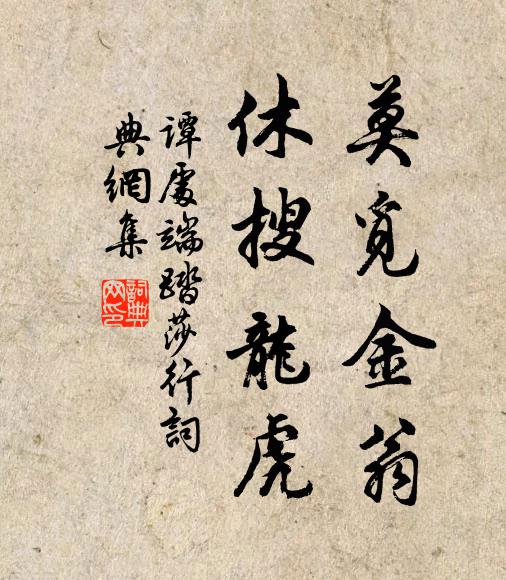 莫覓金翁
休搜龍虎
譚處端踏莎行詞
典網集
詞典網印